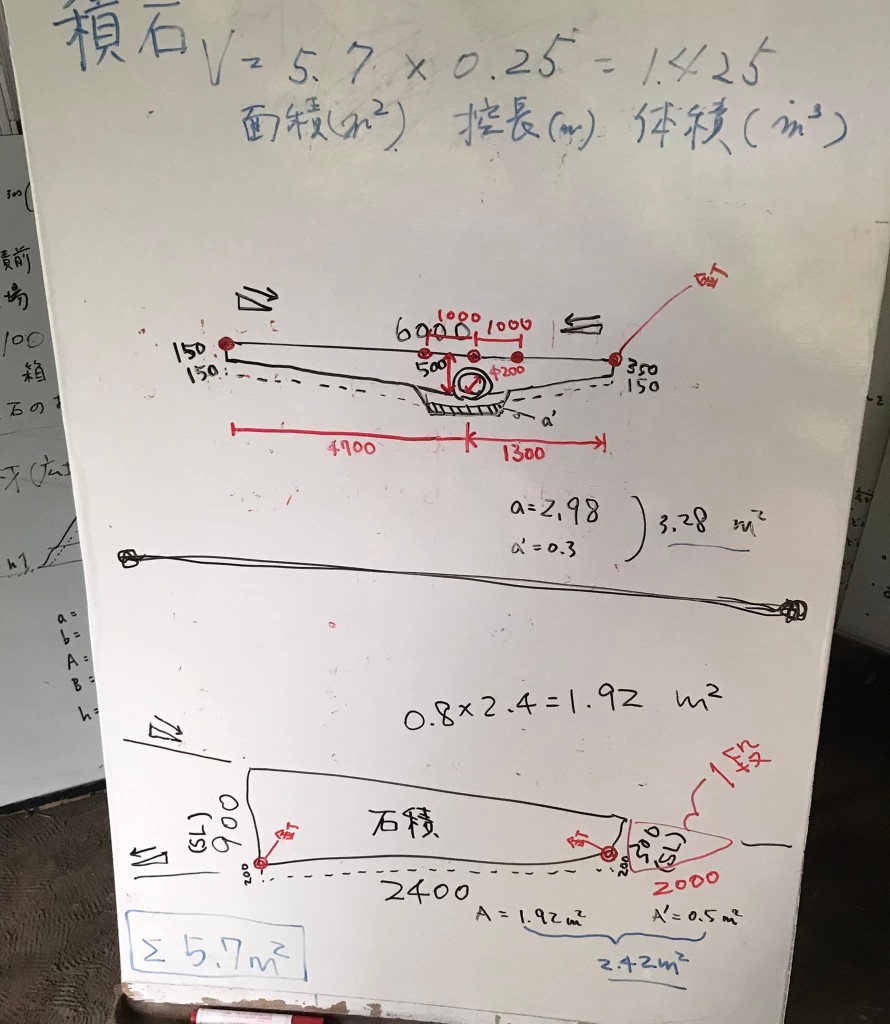 積石
V = 5.7 × 0.25 = 1.425
面積(m²) 控長(m) 体積(m³)
1000
6000
1000
釘
150
500
φ200
350
150
150
a'
4700
1300
a=2.98
a'=0.3
3.28 m²
0.8×2.4=1.92 m²
1段
(SL)
900
石積
釘
釘
500
(SL)
200
200
2400
2000
A = 1.92m²
A'=0.5m²
2.42m²
Σ 5.7m²
300
積前
場
100
箱
石の
h
a=
b=
A=
B=
h=